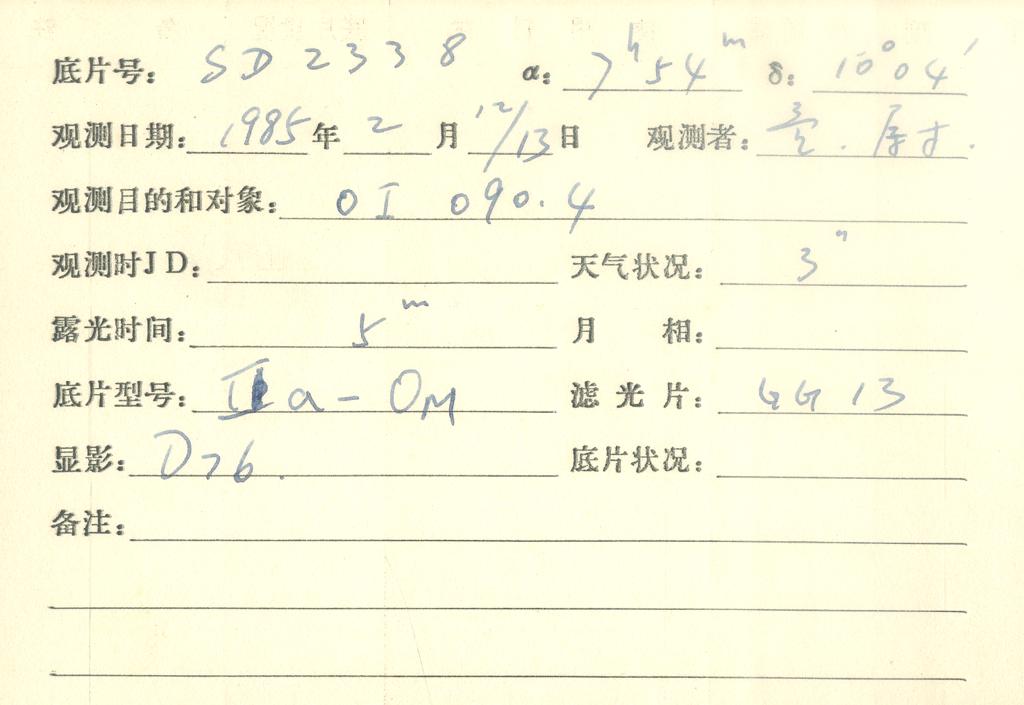 底片号: SD2338 α: 7h54m δ: 10°04′
观测日期: 1985年2月12/13日 观测者:
观测目的和对象: OI 090.4
观测时JD: 天气状况: 3"
露光时间: 5m 月 相:
底片型号: IIa-OM 滤光片: GG13
显影: D76.
底片状况:
备注: